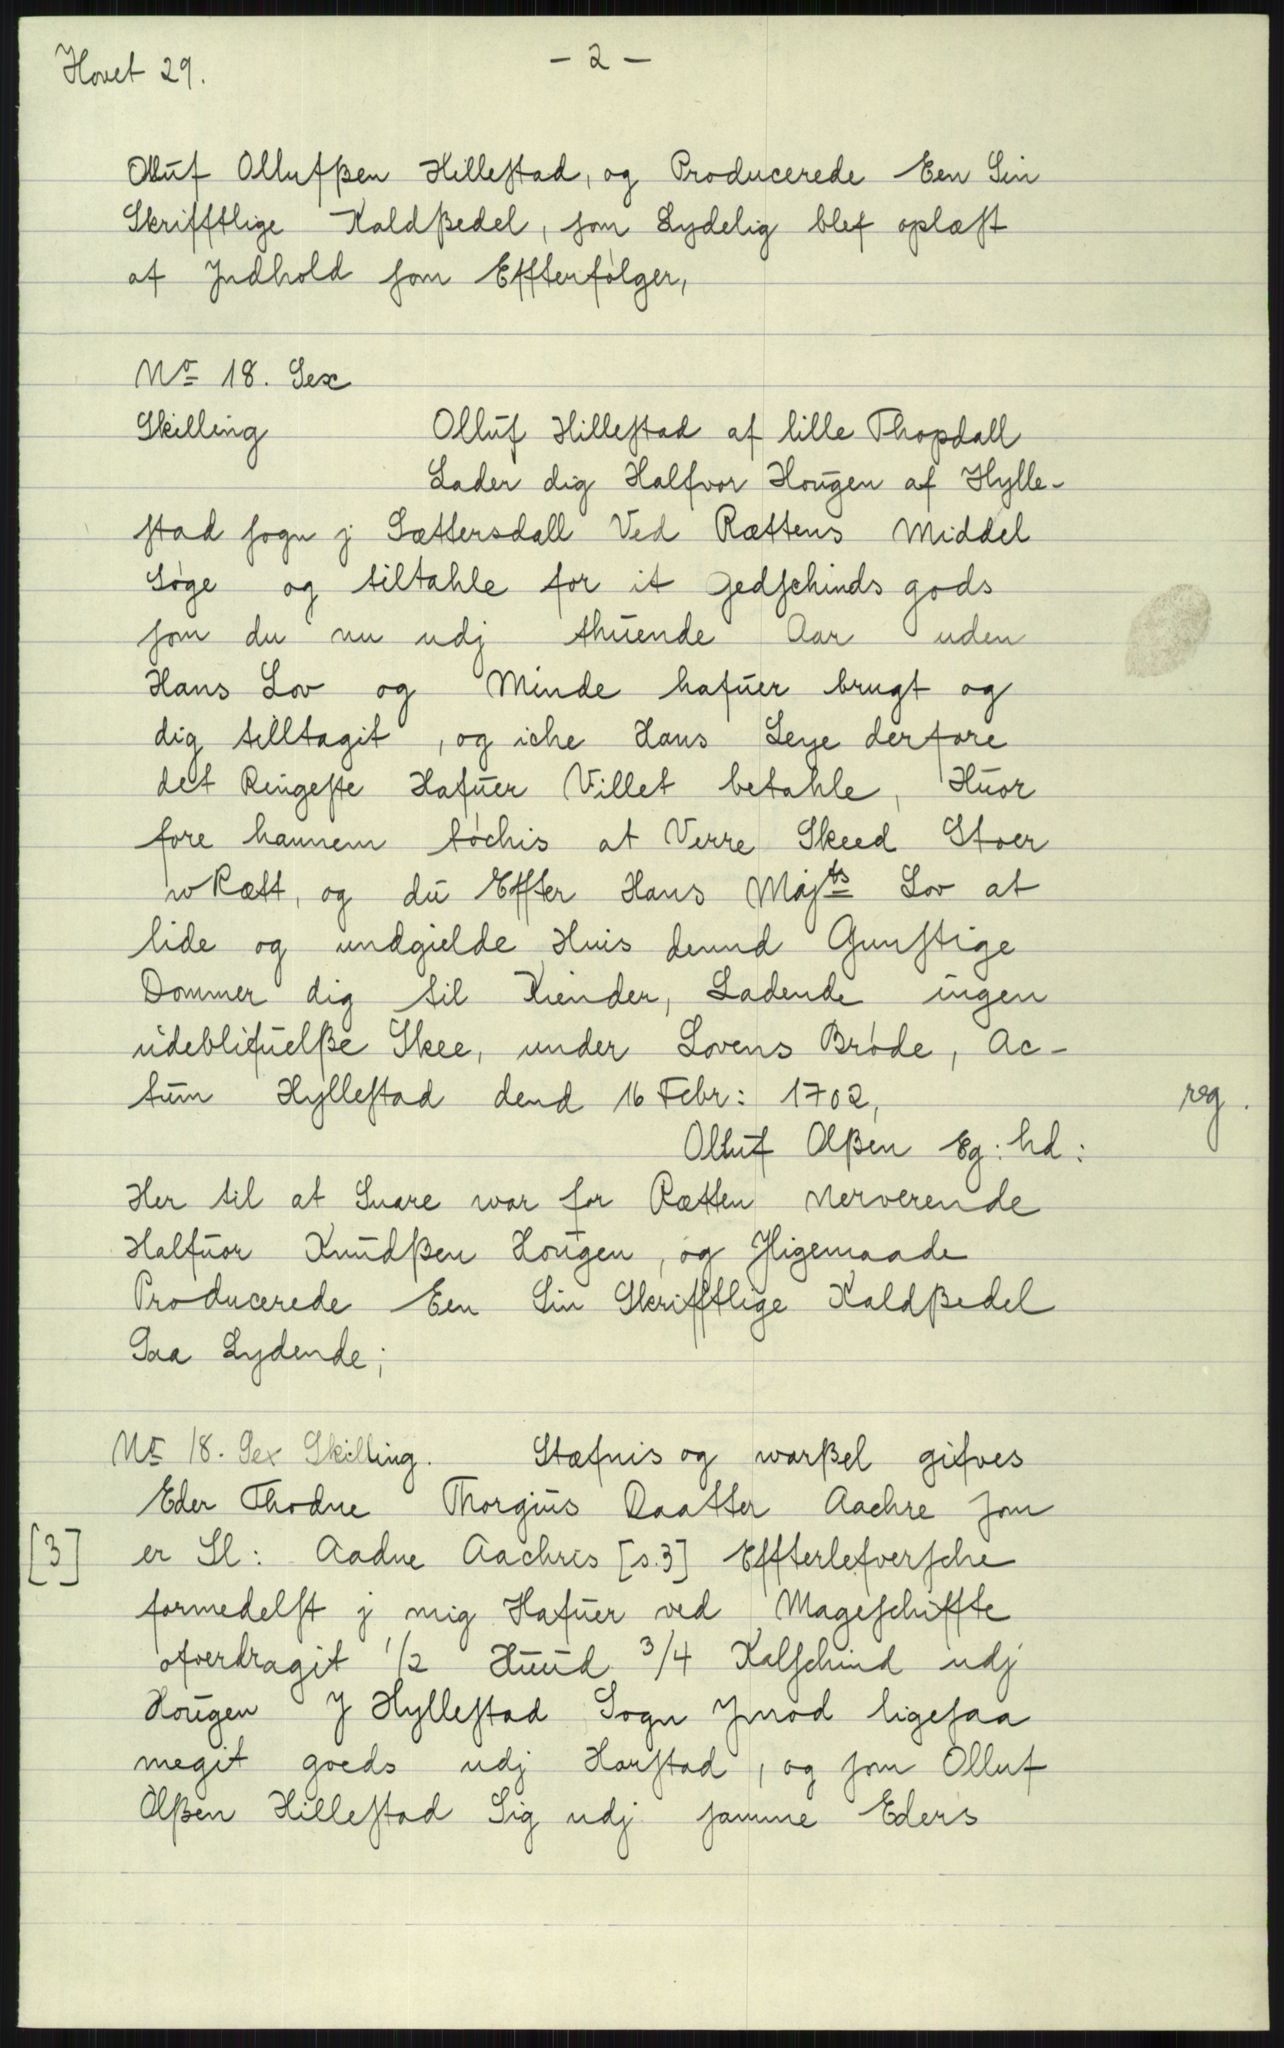 Hovet 29.
- 2 -
Olluf Ollufßen Hillestad, og Producerede Een Sin
Skrifftlige Kaldßedel, som Lydelig blef oplæst
af Jndhold som Effterfølger,
No 18. Sex
Skilling Olluf Hillestad af lille Thopdall
Lader dig Halfvor Hougen af Hylle-
stad sogn j Sættersdall Ved Rættens Middel
Søge og tiltahle for it gedschinds gods
som du nu udj thuende Aar uden
Hans Lov og Minde hafuer brugt og
dig tilltagit, og iche Hans Leye derfore
det Ringeste Hafuer Villet betahle, Huor
fore hannem tøchis at Verre Skeed Stoer
wRætt, og du Effter Hans Majts Lov at
lide og undgielde Huis dennd Gunstige
Dommer dig til Kiender, Ladende ingen
udeblifuelße Skee, under Lovens Brøde, Ac-
tum Hyllestad dend 16 Febr: 1702,
reg.
Olluf Olßen Eg: hd:
Her til at Suare war for Rætten nerverende
Halfuor Knudßen Hougen, og ligemaade
Producerede Een Sin Skrifftlige Kaldßedel
Saa Lydende;
No 18. Sex Skilling. Stæfnis og warßel gifves
Eder Thodne Thorgius Daatter Aachre som
[3] er Sl: Aadne Aachris [s.3] Effterlefversche
formedelst j mig Hafuer ved Mageschiffte
ofverdragit 1/2 Huud 3/4 Kalfschind udj
Hougen J Hyllestad Sogn Jmod ligesaa
megit goeds udj Harstad, og som Olluf
Olßen Hillestad Sig udj samme Eders